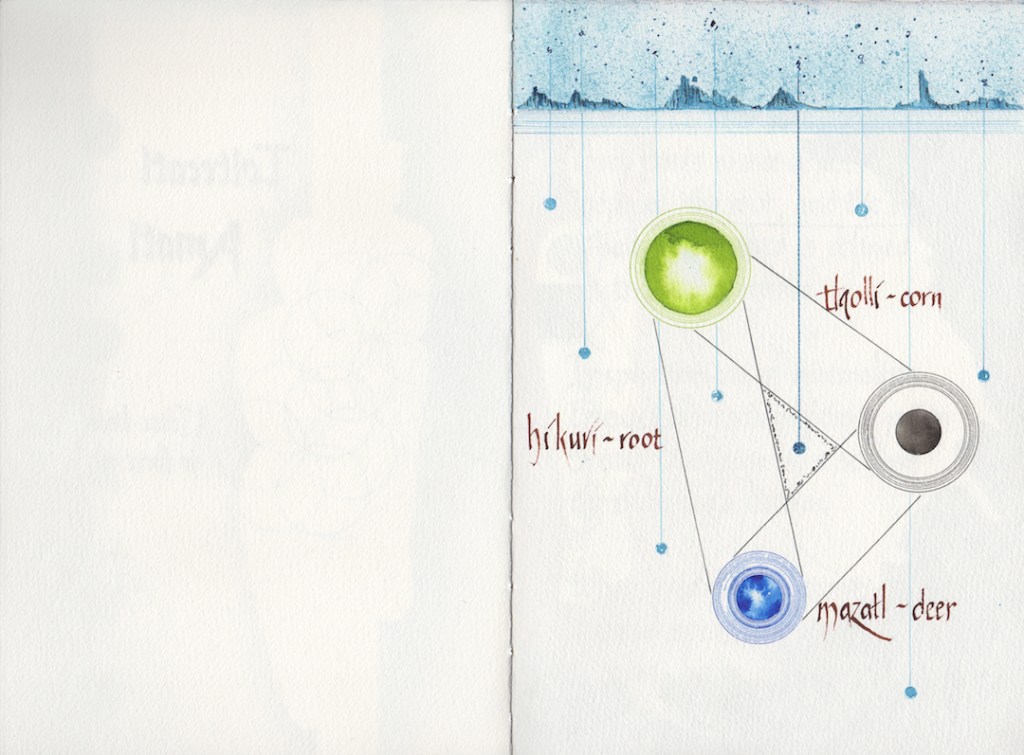 tlaolli ~ corn
hikuri ~ root
mazatl ~ deer